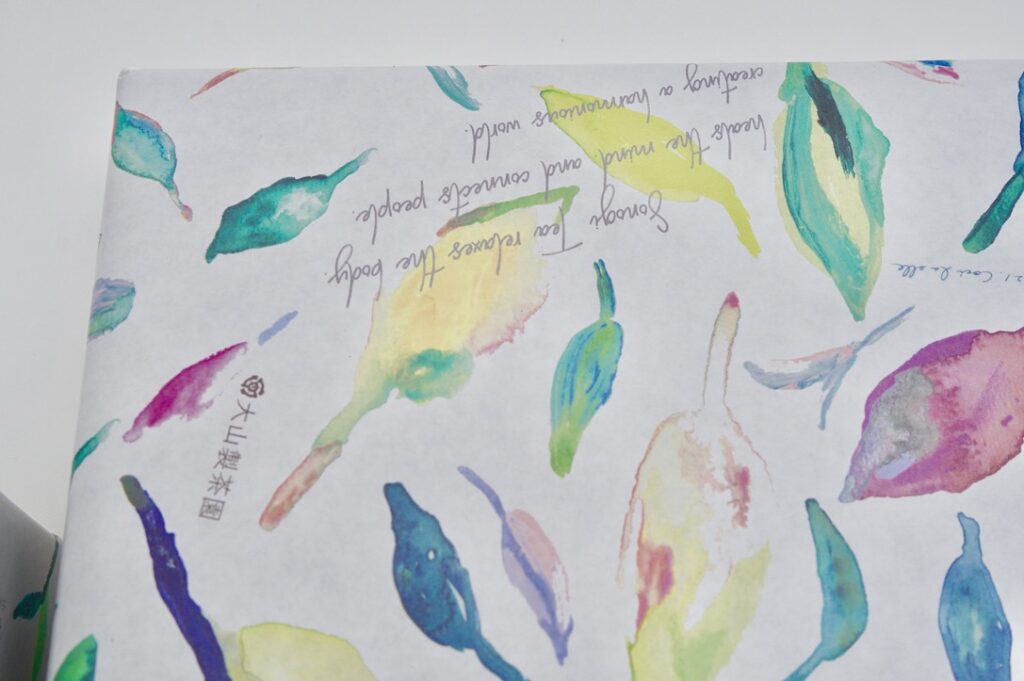 Sonogi Tea relaxes the body,
heals the mind and connects people,
creating a harmonious world.
Coci la elle
大山製茶園